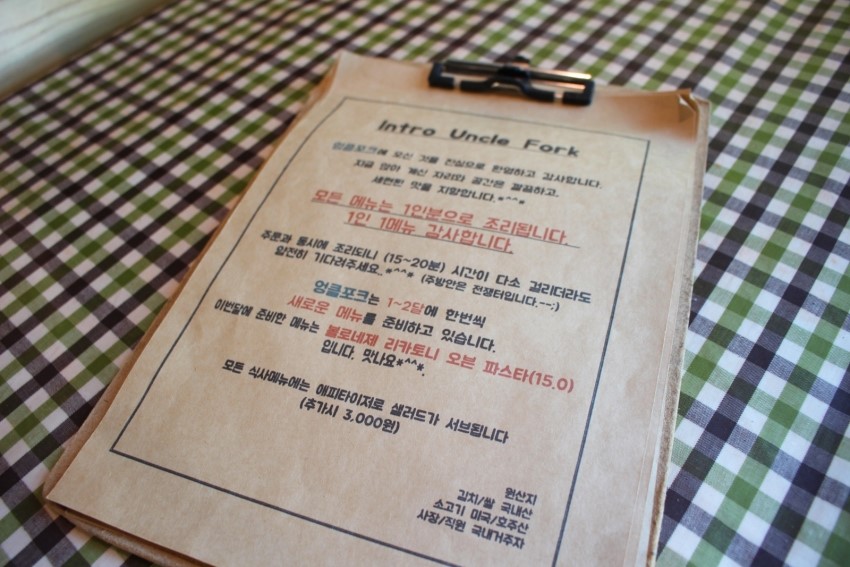 Intro Uncle Fork
엉클포크에 오신 것을 진심으로 환영하고 감사합니다.
지금 앉아 계신 자리와 공간은 깔끔하고,
세련된 맛을 지향합니다.*^^*
모든 메뉴는 1인분으로 조리됩니다.
1인 1메뉴 감사합니다.
주문과 동시에 조리되니 (15~20분) 시간이 다소 걸리더라도
얌전히 기다려주세요.*^^* (주방안은 전쟁터입니다.--;)
엉클포크는 1~2달에 한번씩
새로운 메뉴를 준비하고 있습니다.
이번달에 준비한 메뉴는 볼로네제 리카토니 오븐 파스타(15.0)
입니다. 맛나요*^^*.
모든 식사메뉴에는 애피타이저로 샐러드가 서브됩니다
(추가시 3,000원)
원산지
김치/쌀 국내산
소고기 미국/호주산
사장/직원 국내거주자